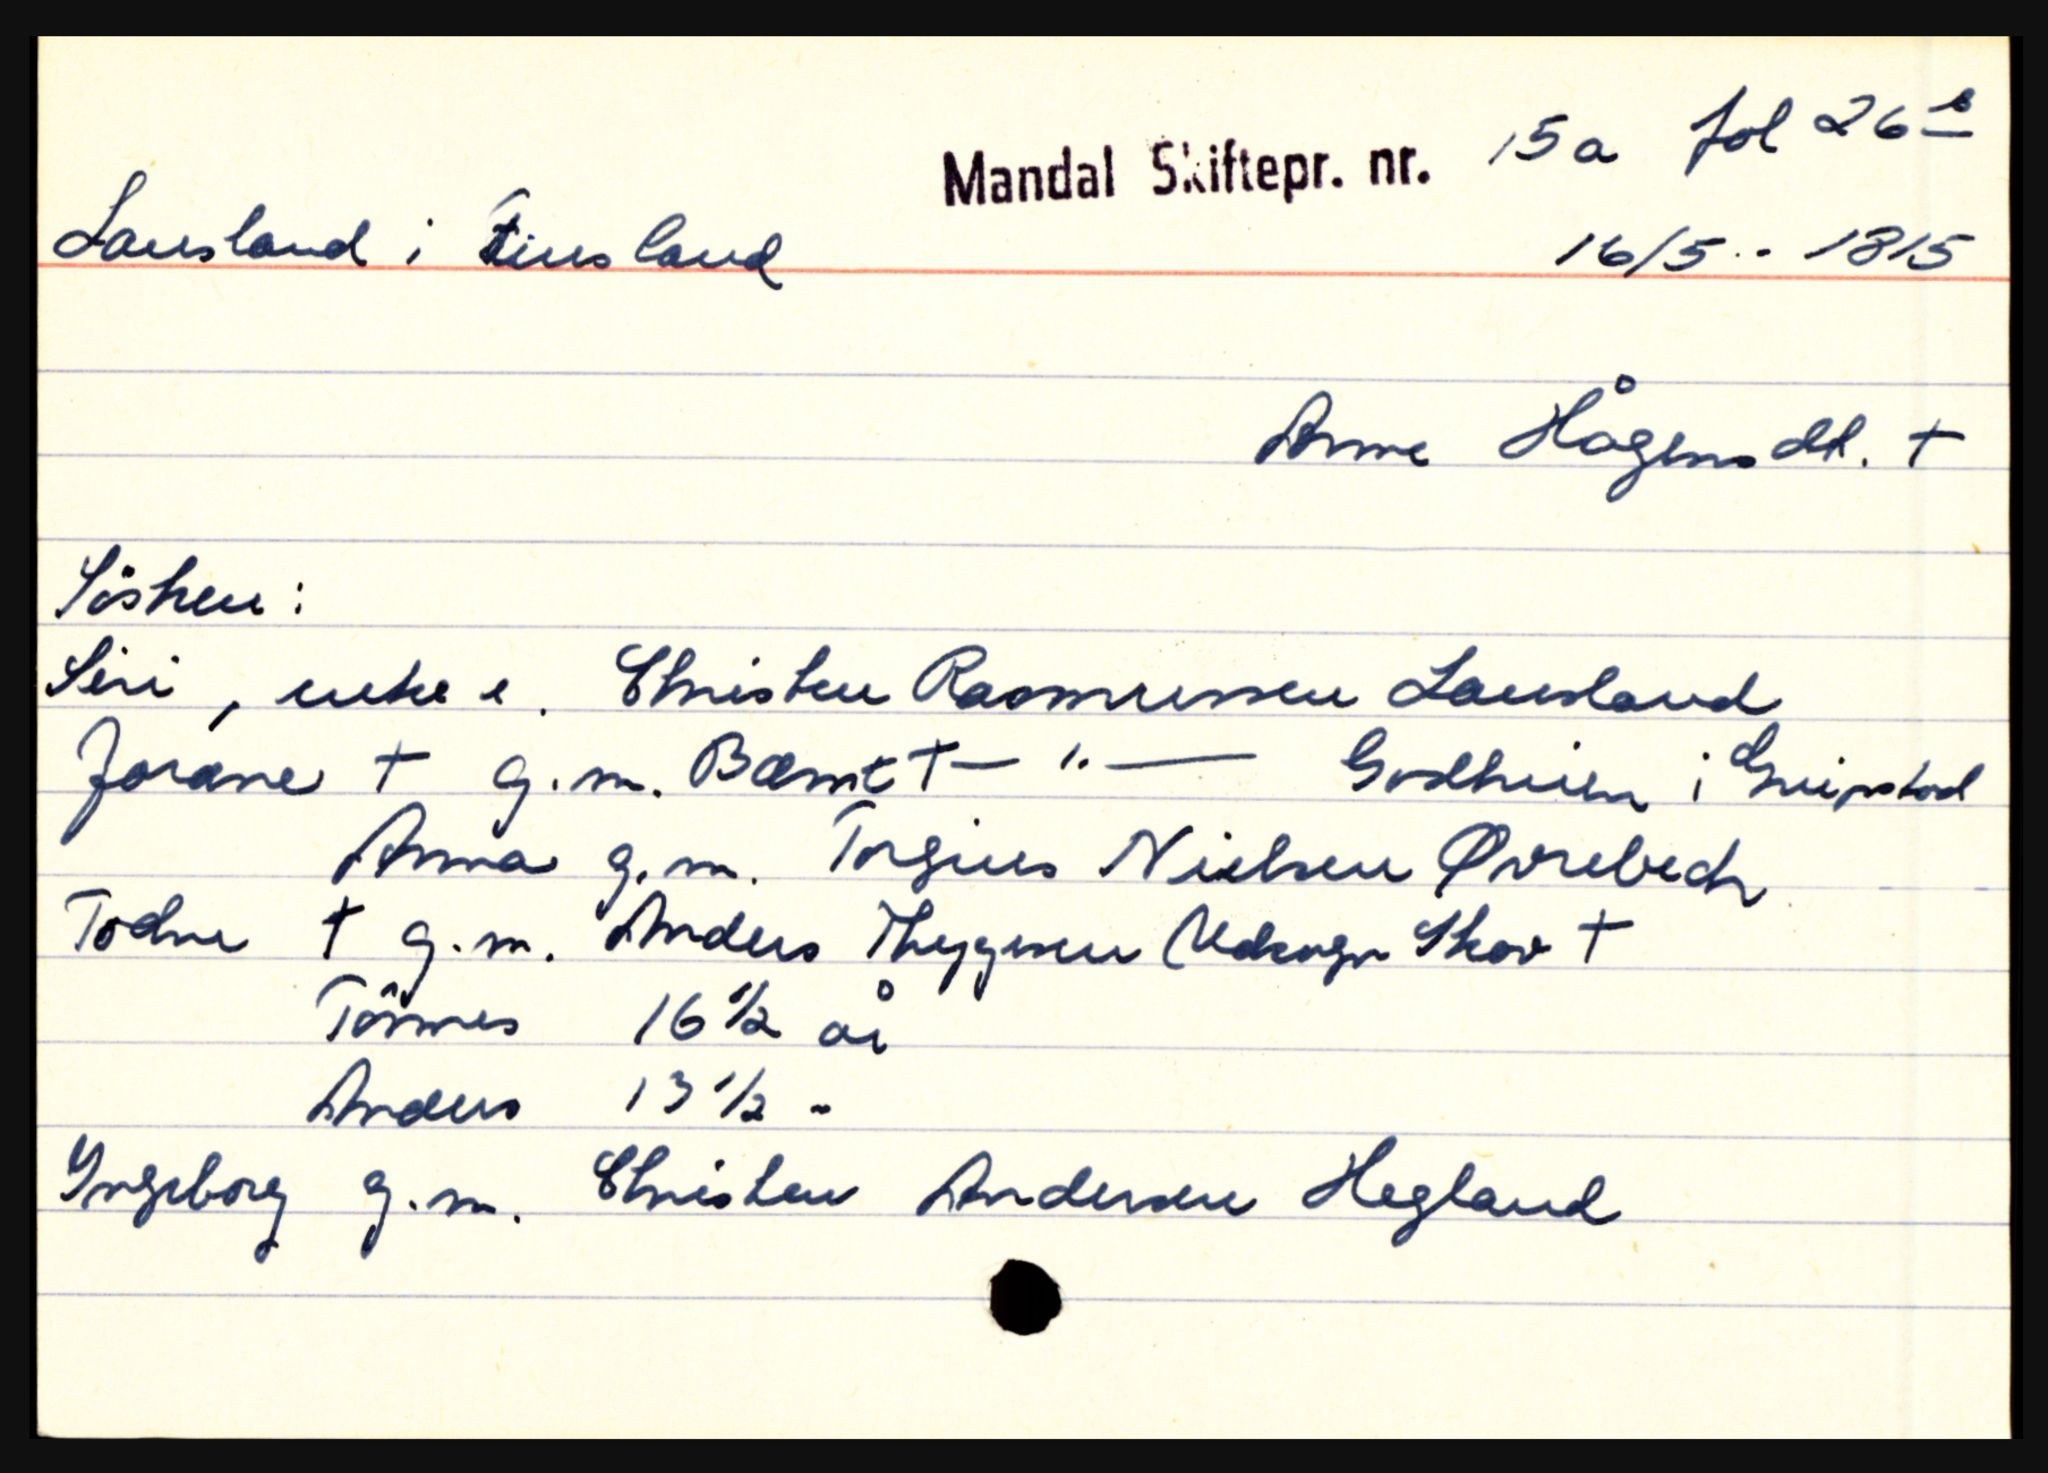 Mandal Skiftepr. nr. 15a fol 26b
Lausland i Finsland 16/5 - 1815
Anne Hågensdt. †
Søsken:
Siri, enke e. Christen Rasmussen Lausland
Jorane † g.m. Bernt † — " — Godheim i Greipstad
Anna g.m. Torgius Nielsen Øvrebech
Todne † g.m. Anders Thygesen Skov †
Tönnes 16 1/2 år
Anders 13 1/2 "
Ingeborg g.m. Christen Andersen Hegland